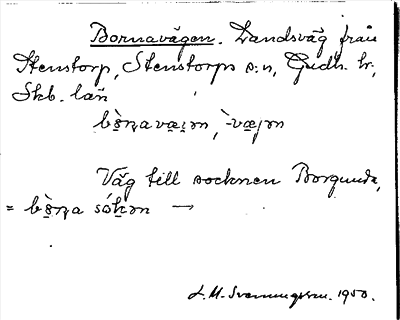 Bornavägen. Landsväg från
Stenstorp, Stenstorps s:n, Gudh. hr,
Skb. län
bò̱ṉavæ̱i̯ən, `-væ̱jən
Väg till socknen Borgunda,
= bò̱ṉa sók̲ən →
L. M. Svenungsson. 1950.